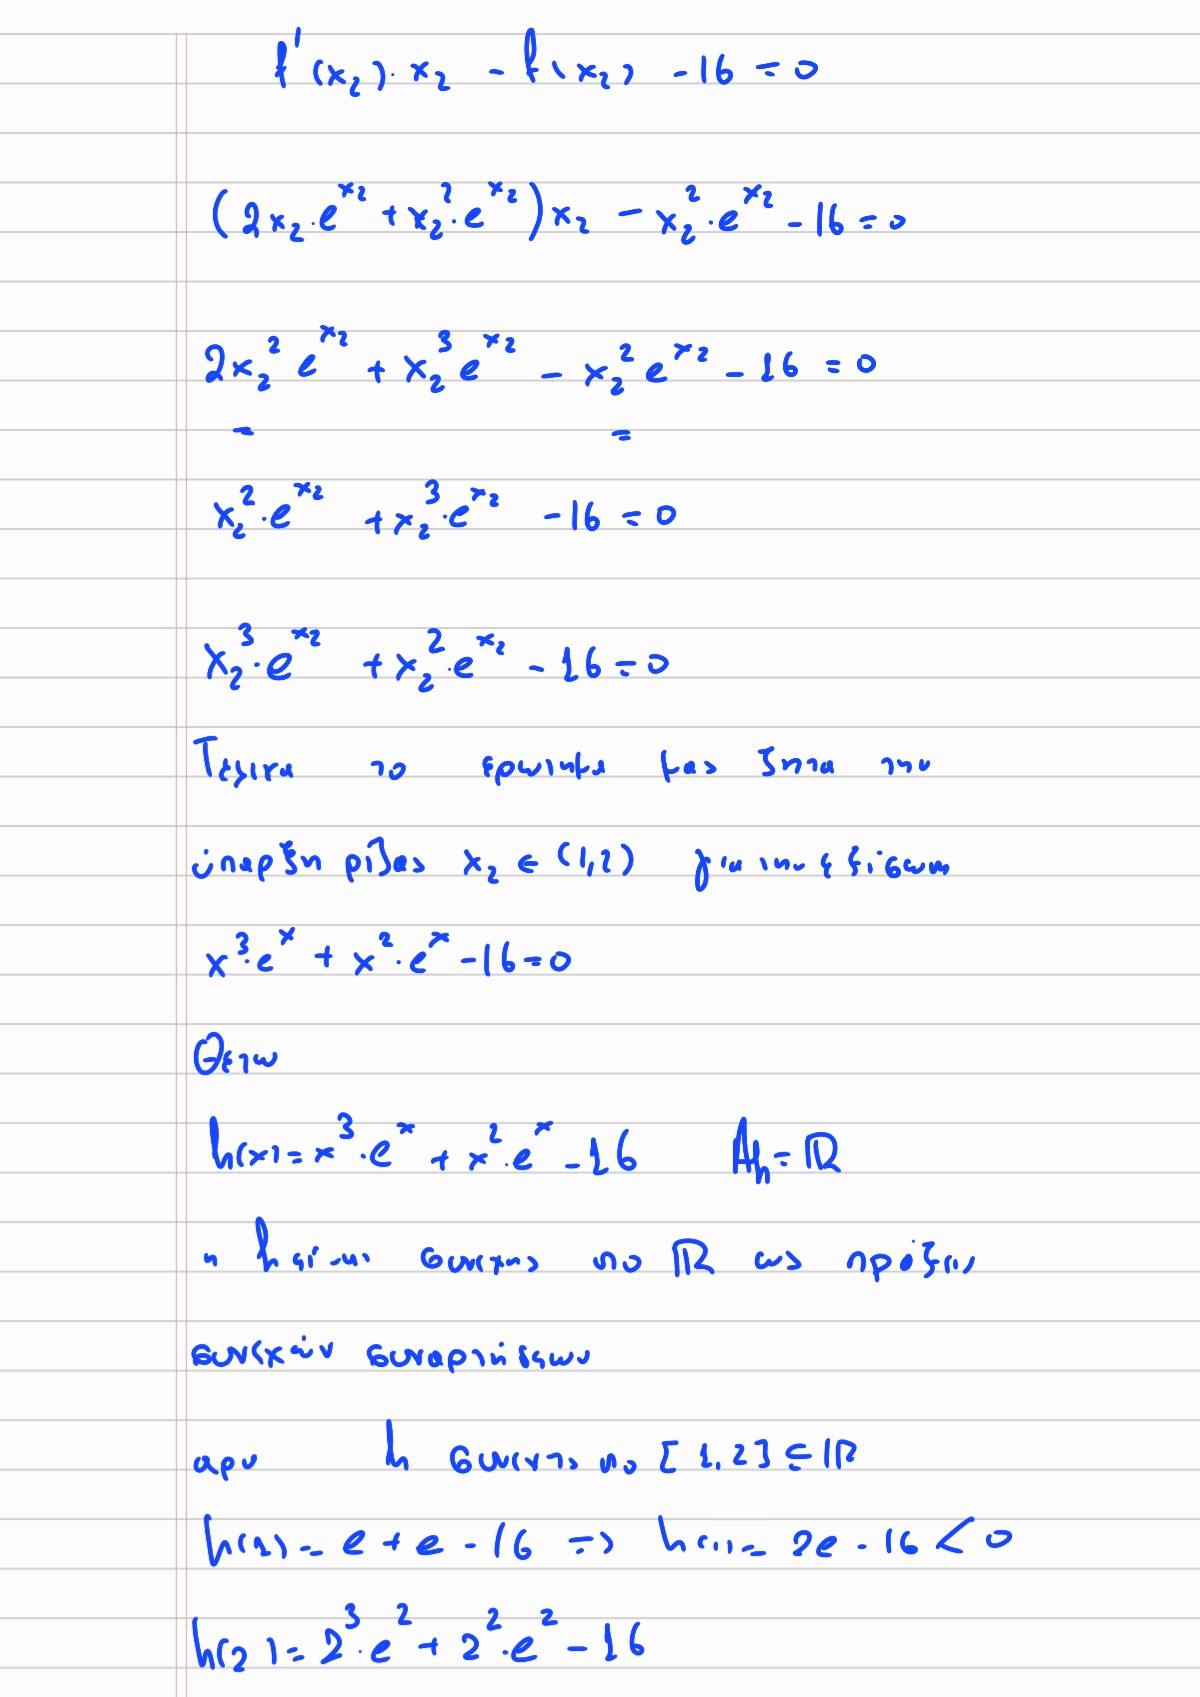 f'(x₂)·x₂ - f(x₂) - 16 = 0
(2x₂·e^{x₂} + x₂²·e^{x₂})x₂ - x₂²·e^{x₂} - 16 = 0
2x₂² e^{x₂} + x₂³ e^{x₂} - x₂² e^{x₂} - 16 = 0
- =
x₂²·e^{x₂} + x₂³·e^{x₂} - 16 = 0
x₂³·e^{x₂} + x₂²·e^{x₂} - 16 = 0
Τελικα το ερωτημα μας ζητα την
ύπαρξη ρίζας x₂ ∈ (1,2) για την εξίσωση
x³·e^x + x²·e^x - 16 = 0
Θετω
h(x) = x³·e^x + x²·e^x - 16 A_h = ℝ
η h είναι συνεχης στο ℝ ως πράξεις
συνεχών συναρτήσεων
αρα h συνεχης στο [1,2] ⊆ ℝ
h(1) = e + e - 16 => h(1) = 2e - 16 < 0
h(2) = 2³·e² + 2²·e² - 16